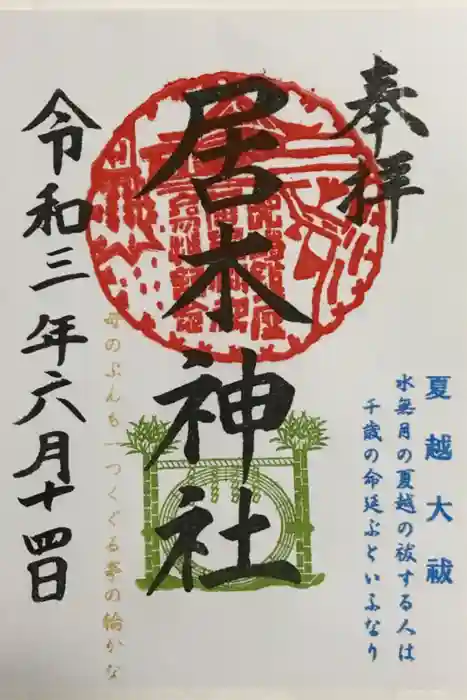 奉拝
夏越大祓
水無月の夏越の祓する人は
千歳の命延ぶといふなり
居木神社
母のぶんも一つくぐる茅の輪かな
令和三年六月十四日